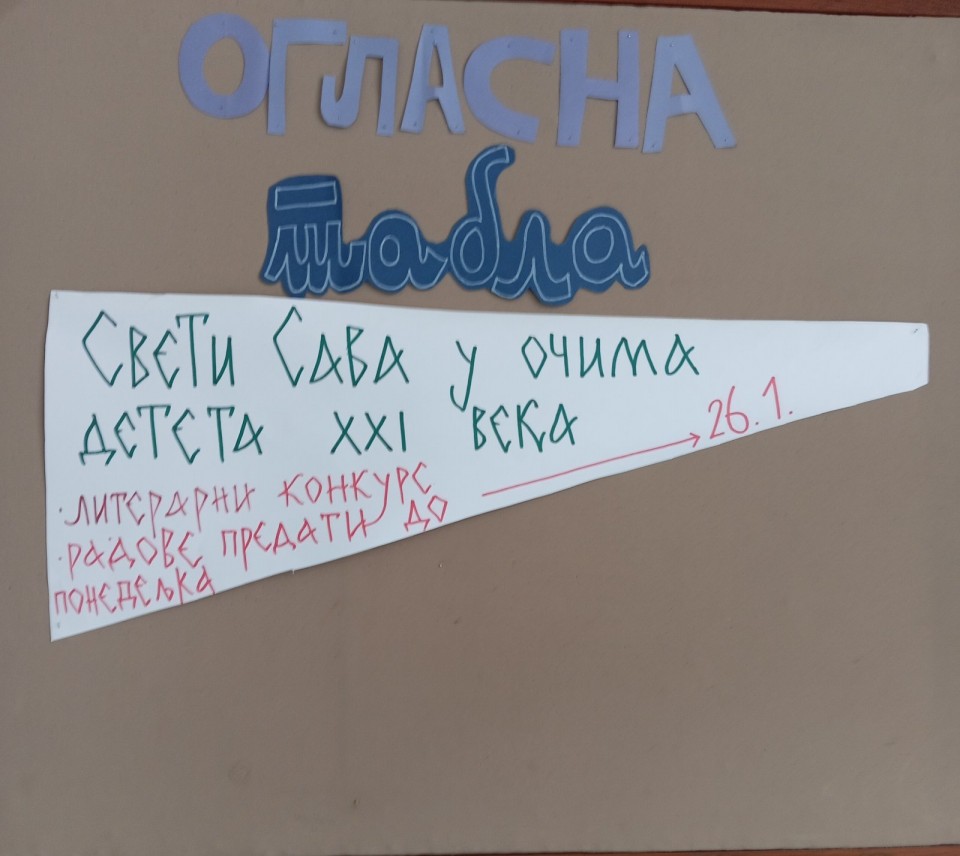 ОГЛАСНА
табла
СВЕТИ САВА У ОЧИМА
ДЕТЕТА XXI ВЕКА
· ЛИТЕРАРНИ КОНКУРС
26.1.
· РАДОВЕ ПРЕДАТИ ДО
ПОНЕДЕЉКА